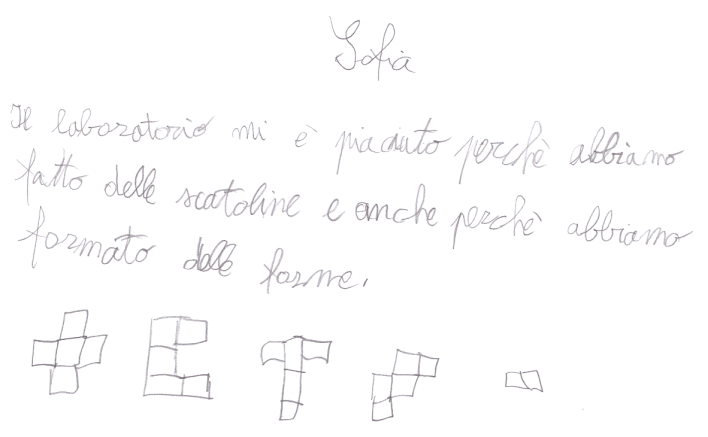 Sofia
Il laboratorio mi è piaciuto perchè abbiamo
fatto delle scatoline e anche perchè abbiamo
formato delle forme.